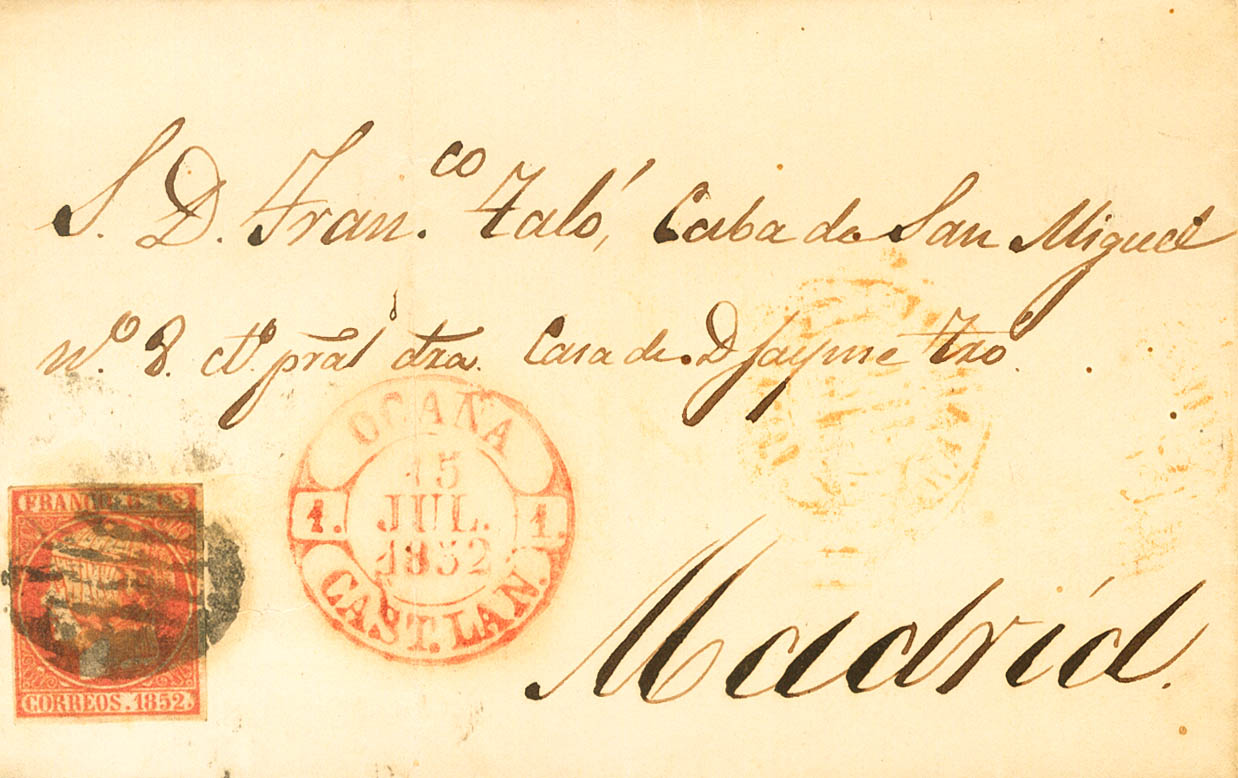 S. D. Fran.co Faló, Caba de San Miguel
nº. 8. cto. pral dra. Casa de D Jayme
Madrid.
OCAÑA
15
JUL.
1852
1. 1.
CAST. LAN.
CORREOS. 1852.